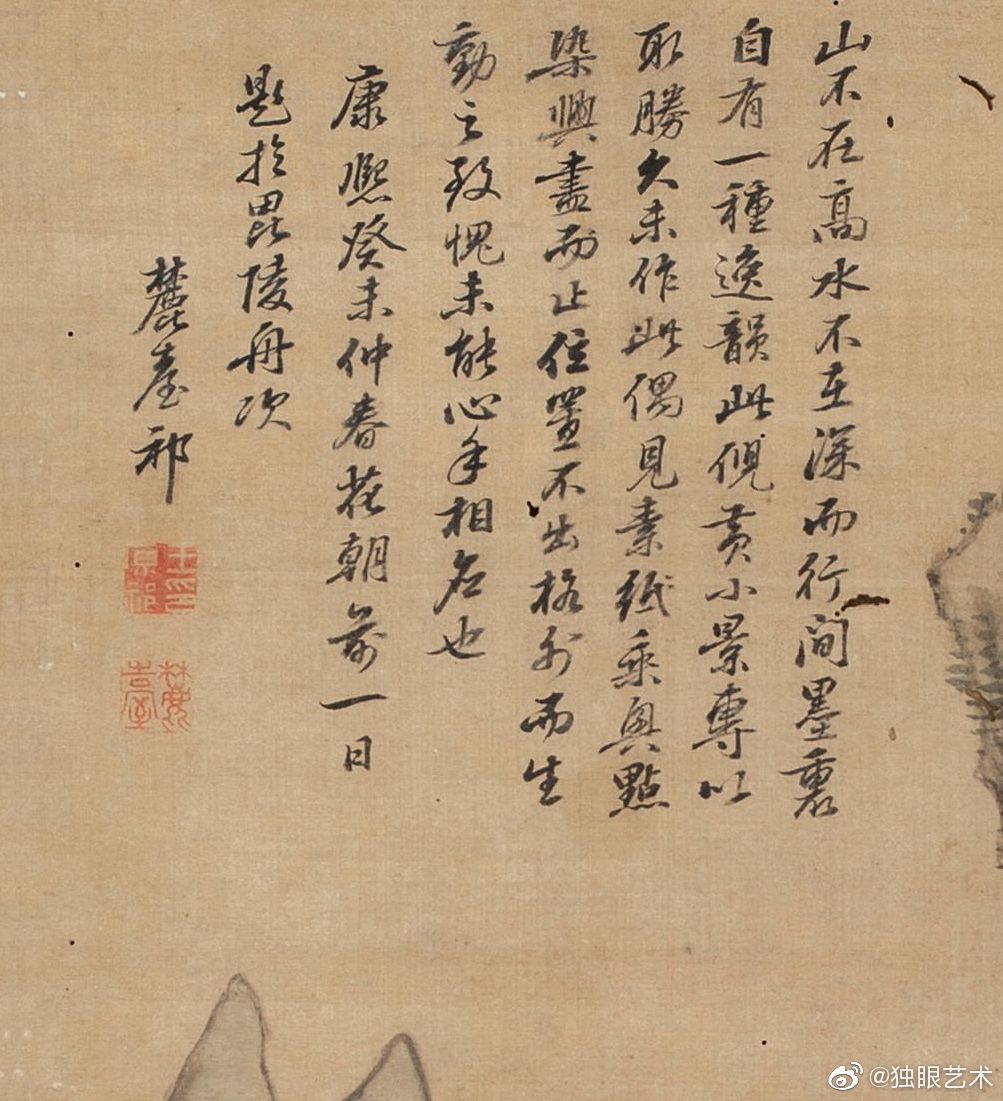 山不在高水不在深而行間墨裏
自有一種逸韻此倪黃小景專以
取勝久未作此偶見素紙乘興點
染興盡而止位置不出格外而生
動之致愧未能心手相應也
康熙癸未仲春花朝前一日
題於毘陵舟次
麓臺祁
王原祁印
麓臺
@独眼艺术